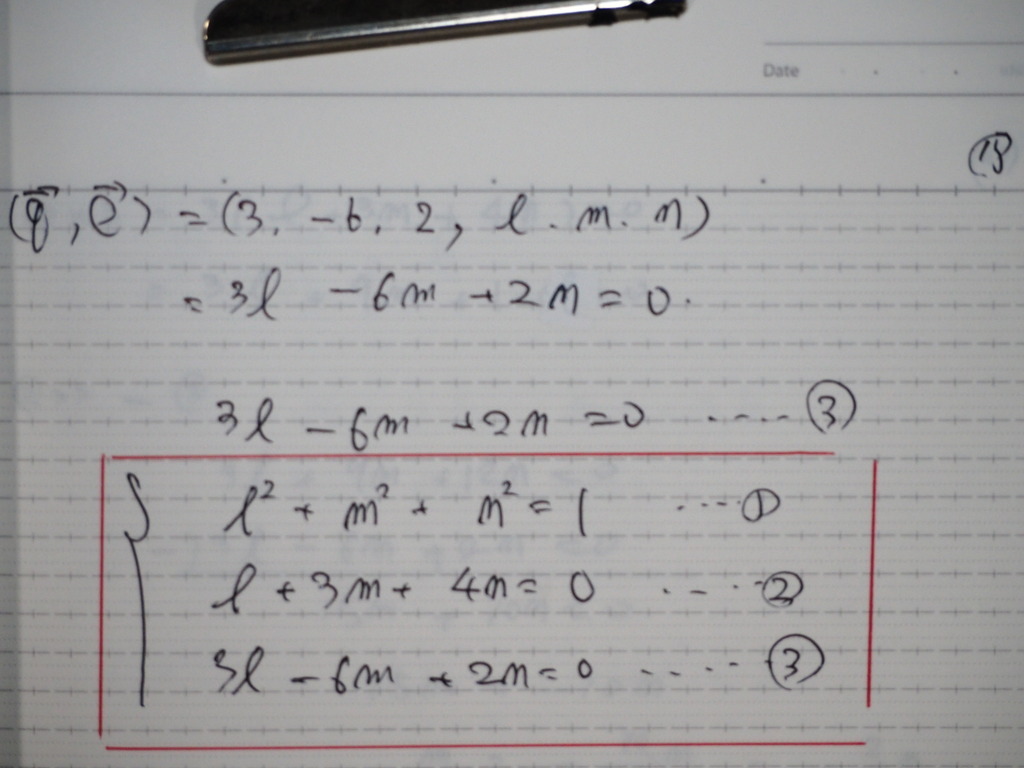 Date
(q⃗, e⃗) = (3. -6. 2, l. m. n)
= 3l - 6m + 2n = 0.
3l - 6m + 2n = 0 ..... ③
l² + m² + n² = 1 ..... ①
l + 3m + 4n = 0 ..... ②
3l - 6m + 2n = 0 ..... ③